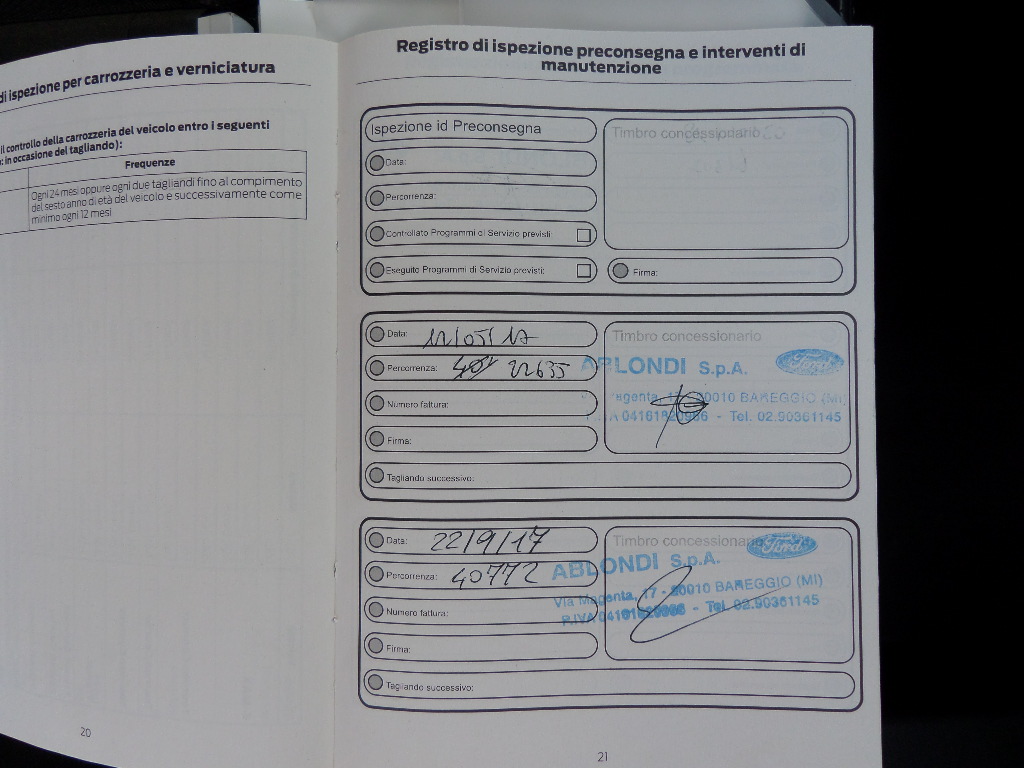 di ispezione per carrozzeria e verniciatura
il controllo della carrozzeria del veicolo entro i seguenti
: in occasione del tagliando):
Frequenze
Ogni 24 mesi oppure ogni due tagliandi fino al compimento
del sesto anno di età del veicolo e successivamente come
minimo ogni 12 mesi
20
Registro di ispezione preconsegna e interventi di
manutenzione
Ispezione id Preconsegna
Data:
Percorrenza:
Controllato Programmi di Servizio previsti:
Eseguito Programmi di Servizio previsti:
Timbro concessionario
Firma:
Data: 11/05/17
Percorrenza: 22635
Numero fattura:
Firma:
Tagliando successivo:
Timbro concessionario
ABLONDI S.p.A. Ford
agenta, 17 - 20010 BAREGGIO (MI)
P.IVA 04161820966 - Tel. 02.90361145
Data: 22/9/17
Percorrenza: 40772
Numero fattura:
Firma:
Tagliando successivo:
Timbro concessionario
Ford
ABLONDI S.p.A.
Via Magenta, 17 - 20010 BAREGGIO (MI)
P.IVA 04161820966 - Tel. 02.90361145
21